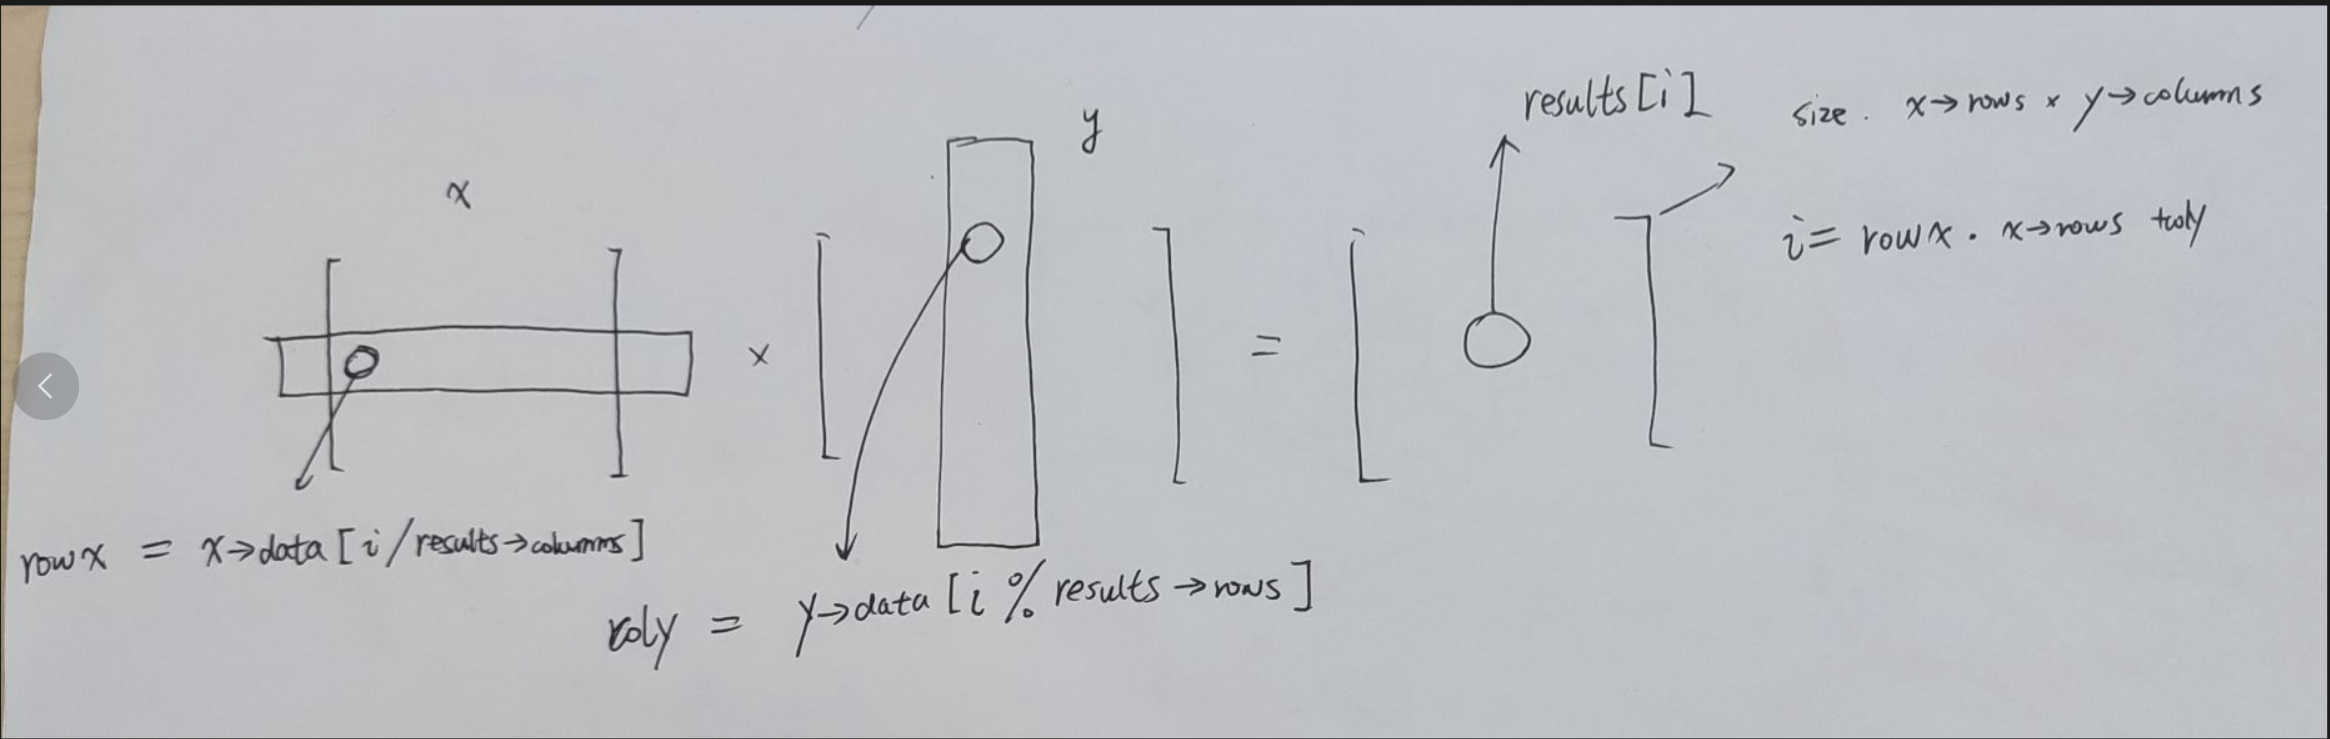 x
y
x
=
results[i]
size. x→rows x y→columns
i = rowx · x→rows +coly
rowx = x→data[i/results→columns]
coly = y→data[i % results→rows]